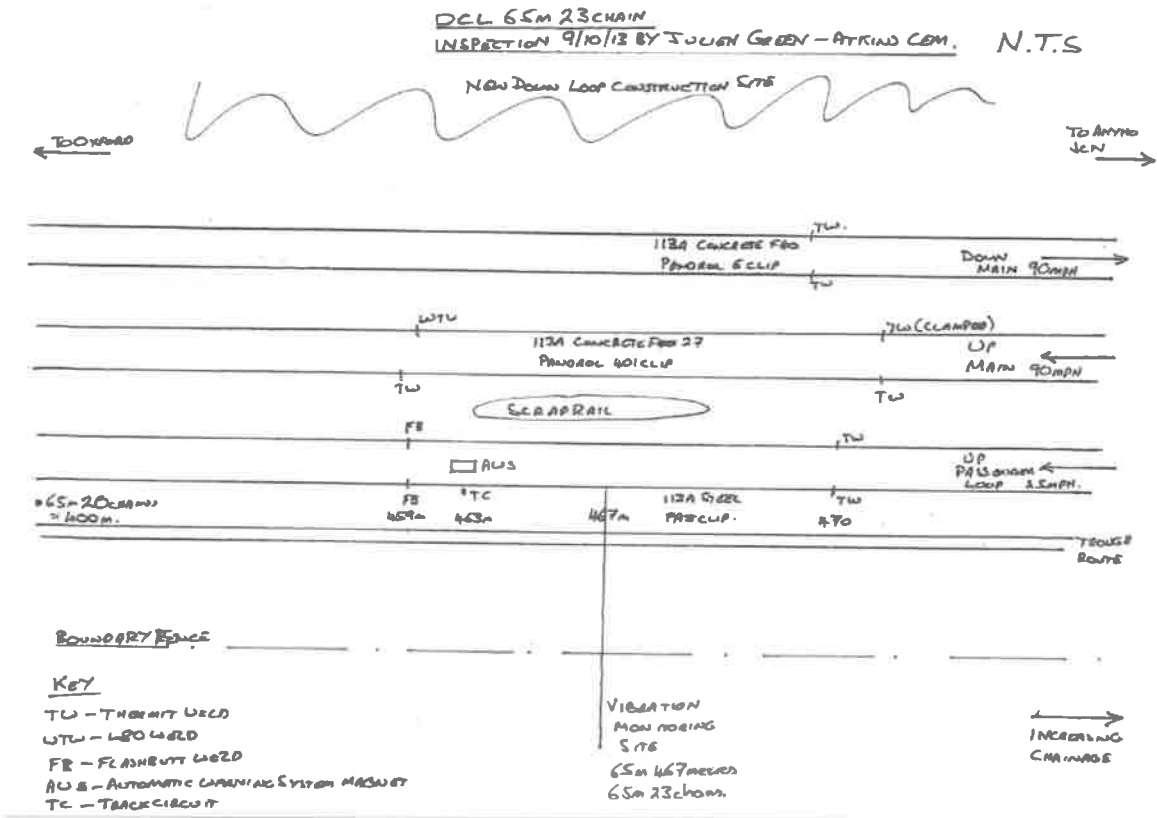 DCL 65m 23CHAIN
INSPECTION 9/10/13 BY JULIEN GREEN - ATKINS CEM. N.T.S
NEW DOWN LOOP CONSTRUCTION SITE
TO OXFORD
TO AYNHO
JCN
TW.
113A CONCRETE F40
PANDROL E CLIP
DOWN
MAIN 90MPH
TW
WTW
TW (CLAMPED)
113A CONCRETE F27
PANDROL 401 CLIP
UP
MAIN 90MPH
TW
TW
SCRAP RAIL
FB
TW
AWS
UP
PASSENGER
LOOP 35MPH.
65m 20CHAINS
= 400m.
FB
TC
113A STEEL
TW
459m
463m
467m
PATCLIP.
470
TROUGH
ROUTE
BOUNDARY FENCE
KEY
TW - THERMIT WELD
WTW - L80 WELD
FB - FLASHBUTT WELD
AWS - AUTOMATIC WARNING SYSTEM MAGNET
TC - TRACK CIRCUIT
VIBRATION
MONITORING
SITE
65m 467meters
65m 23chains.
INCREASING
CHAINAGE